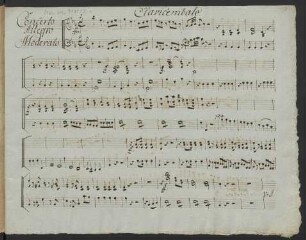 Clavicembalo
Concerto
Allegro
Moderato